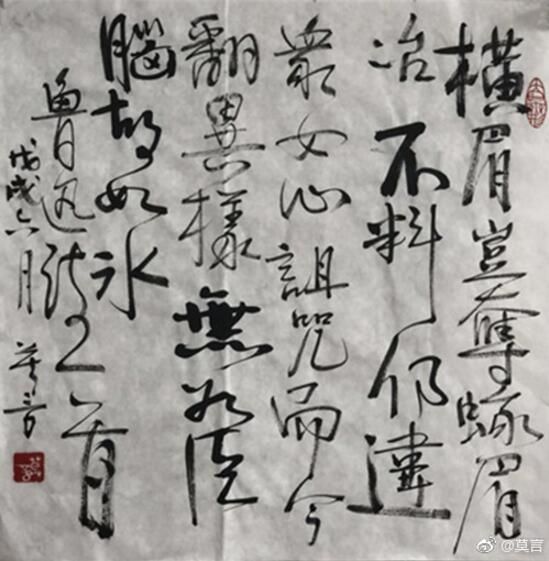 橫眉豈奪蛾眉
冶不料仍違
衆女心詛咒而今
翻異樣無如臣
腦故如冰
魯迅詩首
戊戌六月莫言
@莫言